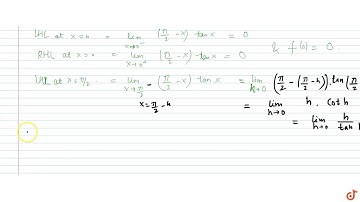 LHL at x=0 = lim x→0⁻ (π/2 - x) tan x = 0
RHL at x=0 = lim x→0⁺ (π/2 - x) · tan x = 0 & f(0) = 0.
LHL at x=π/2 = lim x→π/2⁻ (π/2 - x) tan x = lim h→0 (π/2 - (π/2 - h)) · tan (π/2
x = π/2 - h = lim h→0 h. cot h
= lim h→0 h/tan